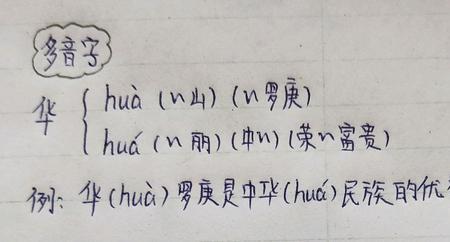 多音字
华 { huà (~山) (~罗庚)
huá (~丽) (中~) (荣~富贵)
例: 华(huà)罗庚是中华(huá)民族的优